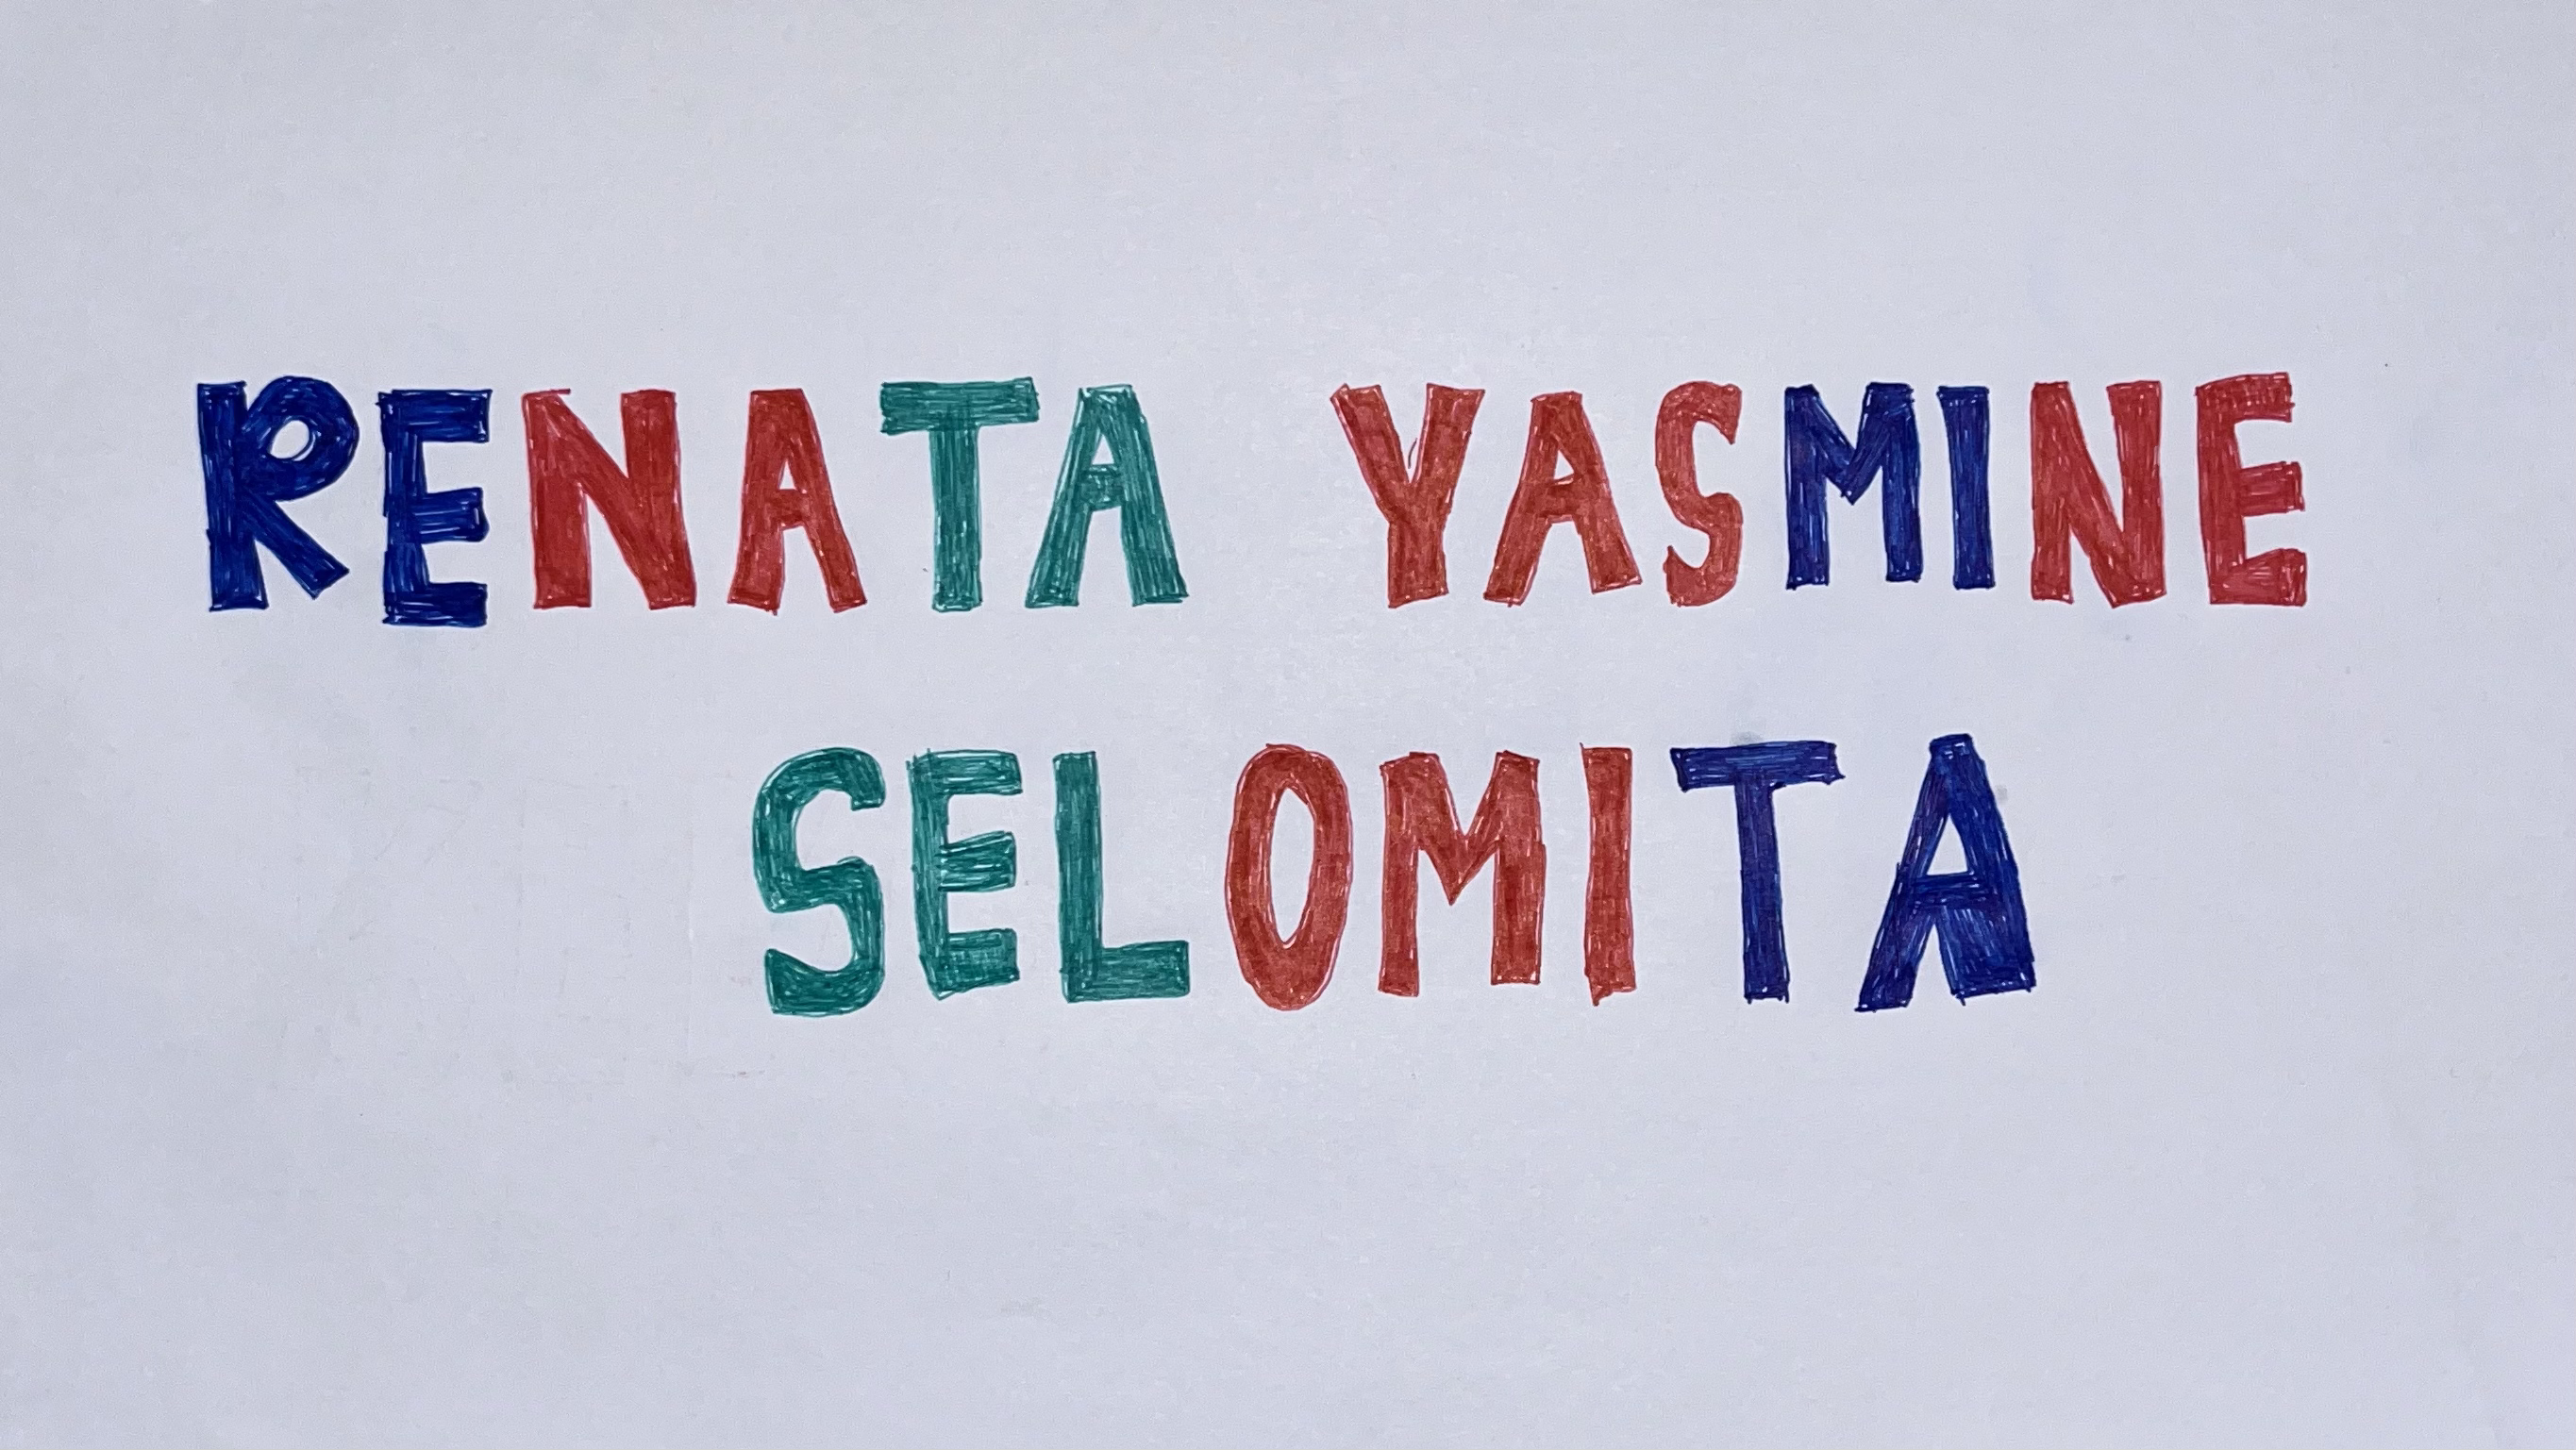 RENATA YASMINE
SELOMITA